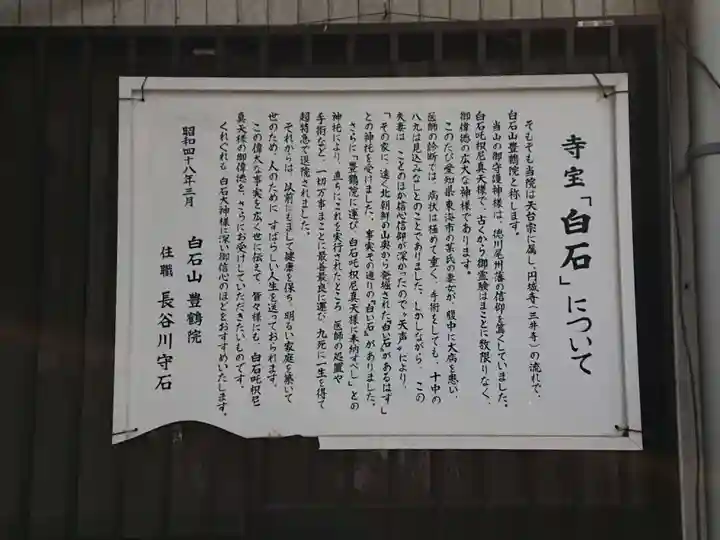 寺宝「白石」について
そもそも当院は天台宗に属し、円城寺(三井寺)の流れで、
白石山豊鶴院と称します。
当山の御守護神様は、徳川尾州藩の信仰を篤くしていました。
白石吒枳尼真天様で、古くから御霊験はまことに数限りなく、
御偉徳の広大な神様であります。
このたび愛知県東海市の某氏の妻女が、腹中に大病を患い、
医師の診断では、病状は極めて重く、手術をしても、十中の
八九は見込みなしとのことでありました。しかしながら、この
夫妻は、ことのほか信心信仰が深かったので〝天声〟により、
「その家に、遠く北朝鮮の山奥から発掘された〝白い石〟があるはず」
との神託を受けました。事実その通りの〝白い石〟がありました。
さらに「豊鶴院に運び、白石吒枳尼真天様に奉納すべし」との
神託により、直ちにこれを実行されたところ、医師の処置や
手術など、一切万事まことに最善最良に運び、九死に一生を得て
超特急で退院されました。
それからは、以前にもまして健康を保ち、明るい家庭を築いて
世のため、人のために、すばらしい人生を送っておられます。
この偉大な事実を広く世に伝えて、皆々様にも、白石吒枳尼
真天様の御偉徳を、さらにお受けしていただきたいものです。
くれぐれも、白石大神様に深い御信心のほどをおすすめいたします。
昭和四十八年三月
白石山 豊鶴院
住職 長谷川守石